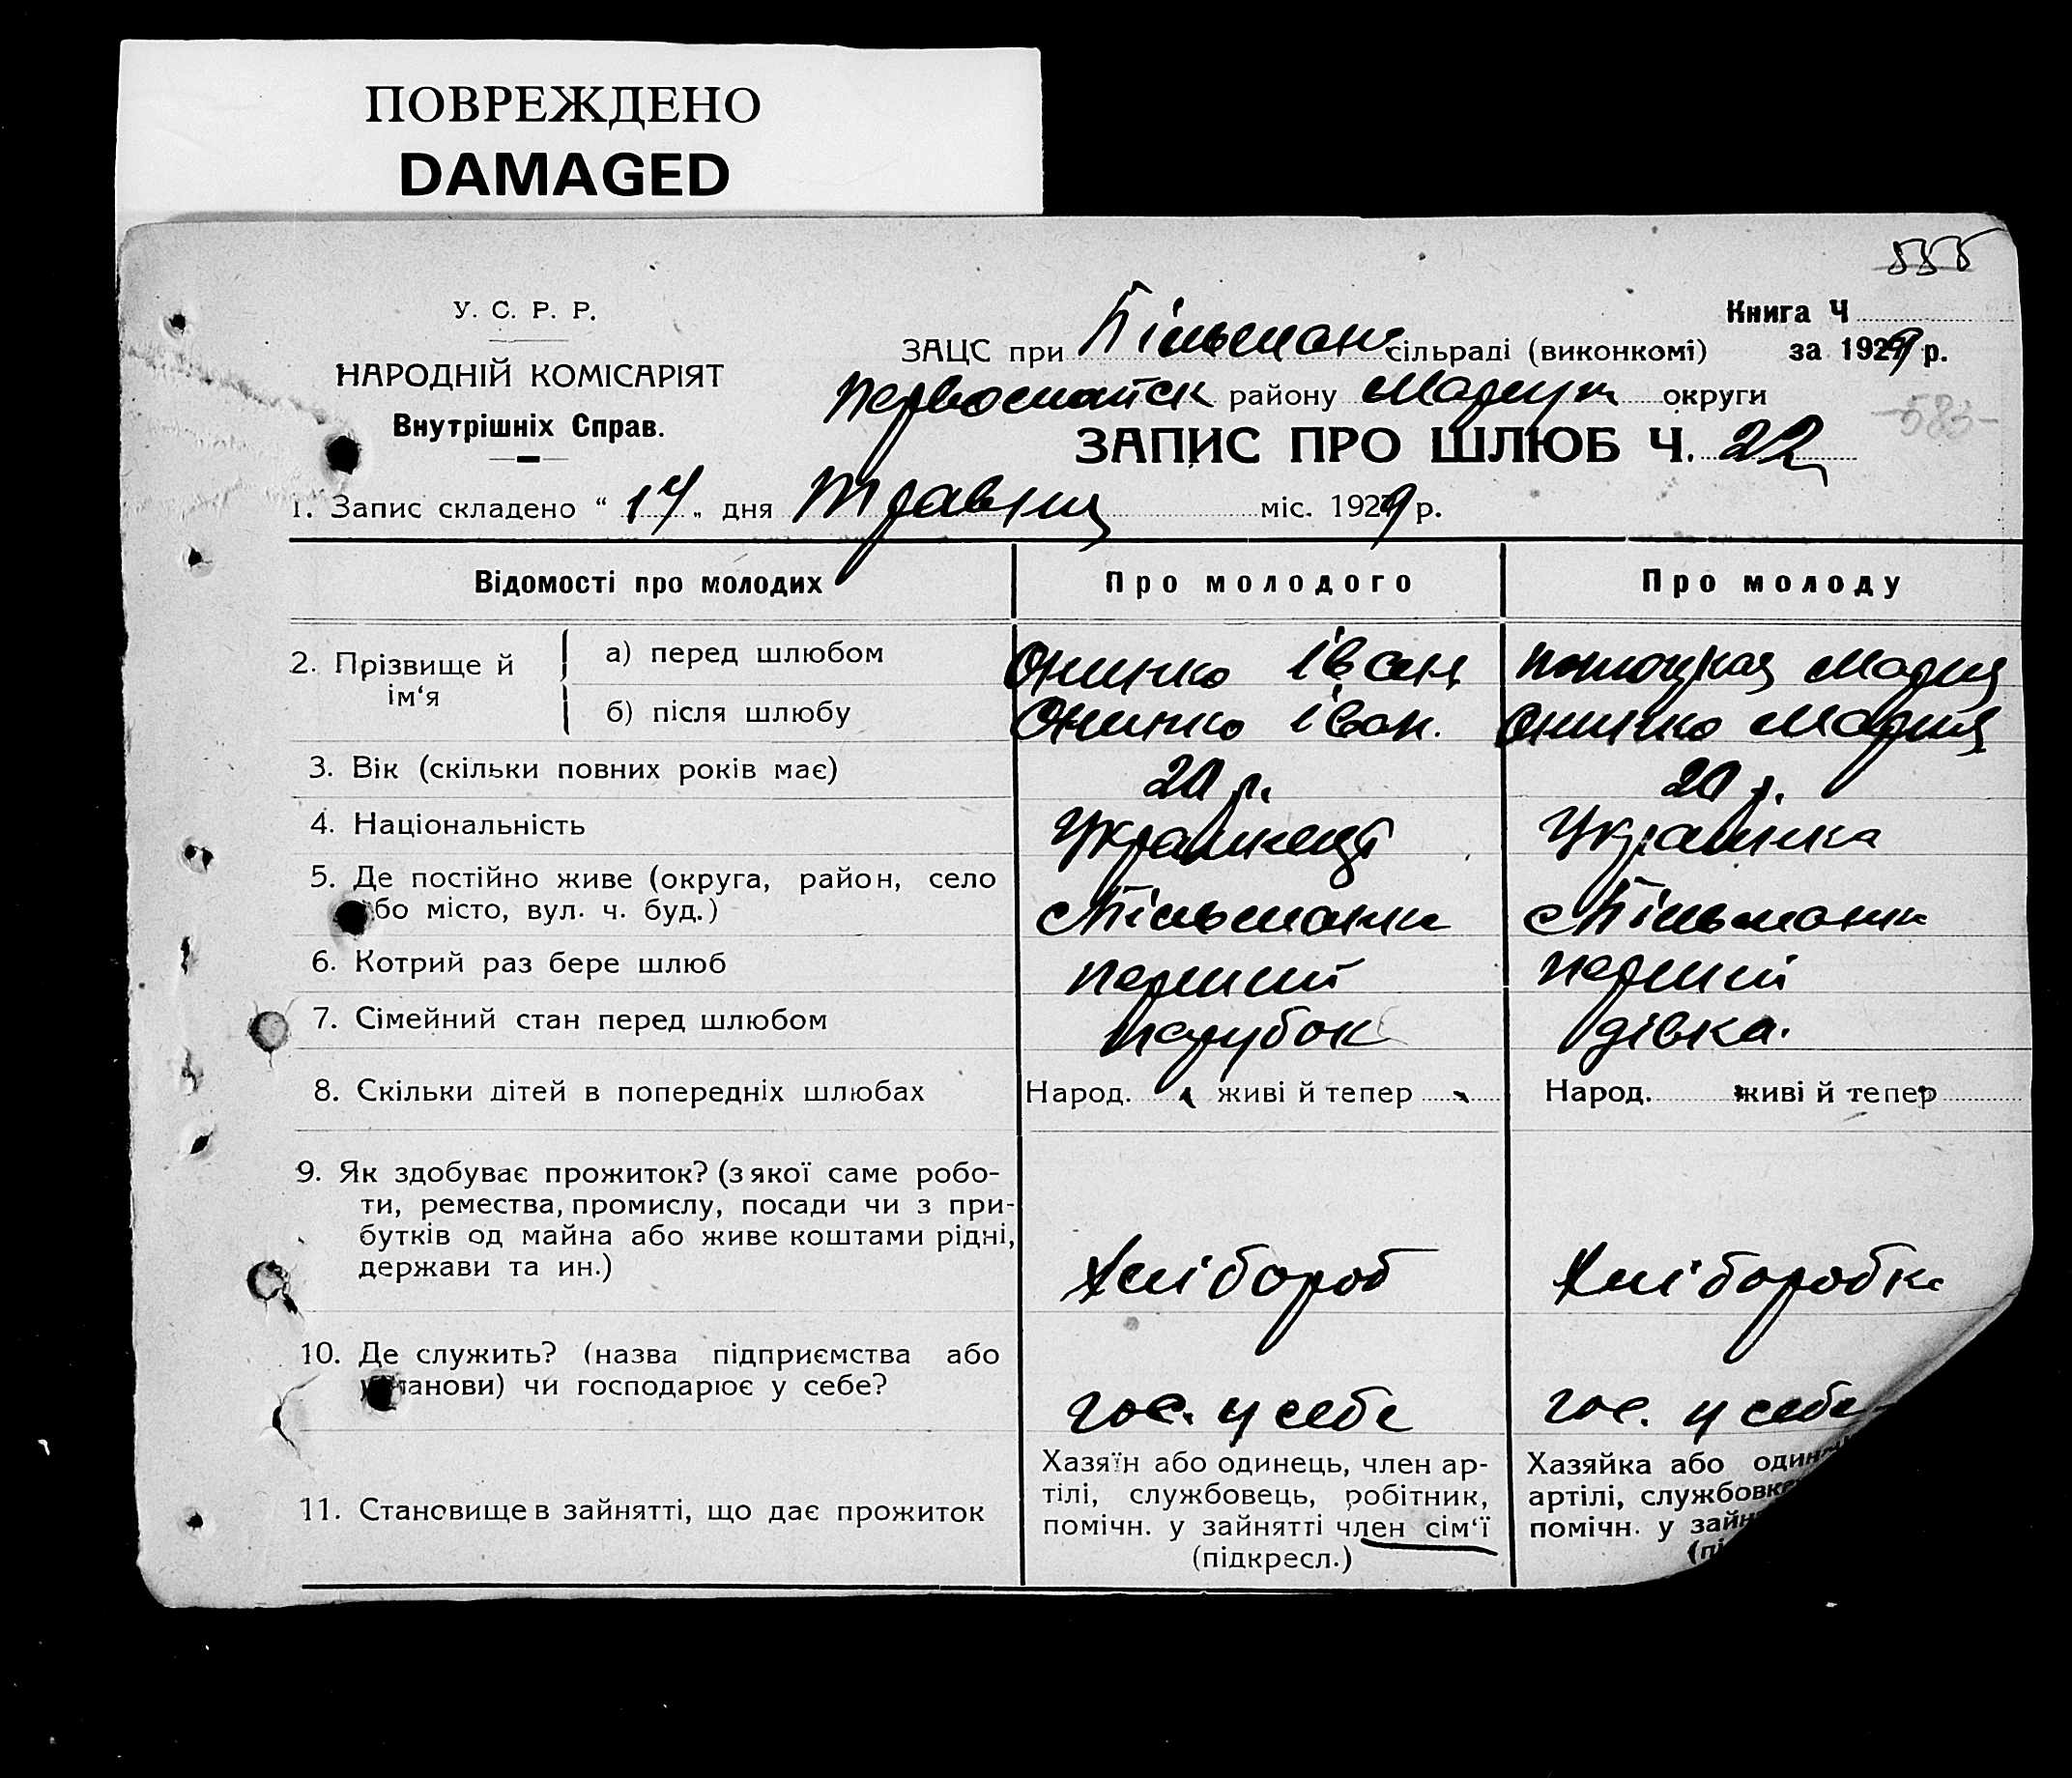 ПОВРЕЖДЕНО
DAMAGED
555
У. С. Р. Р.
НАРОДНІЙ КОМІСАРІЯТ
Внутрішніх Справ.
Книга Ч
ЗАЦС при Більман сільраді (виконкомі) за 1929 р.
Первомайск району Маріуп округи
-583-
ЗАПИС ПРО ШЛЮБ Ч. 22
1. Запис складено “ 17 „ дня Травня міс. 1929 р.
Відомості про молодих Про молодого Про молоду
2. Прізвище й ім‘я
а) перед шлюбом Онипко Іван Мария
б) після шлюбу Онипко Іван. Онипко Мария
3. Вік (скільки повних років має) 20 р. 20 р.
4. Національність Українець Українка
5. Де постійно живе (округа, район, село
або місто, вул. ч. буд.) с Більманка с Більманка
6. Котрий раз бере шлюб перший перший
7. Сімейний стан перед шлюбом парубок дівка.
8. Скільки дітей в попередніх шлюбах Народ. живі й тепер Народ. живі й тепер
9. Як здобуває прожиток? (з якої саме робо-
ти, ремества, промислу, посади чи з при-
бутків од майна або живе коштами рідні,
держави та ин.) Хлібороб Хліборобка
10. Де служить? (назва підприємства або
установи) чи господарює у себе? гос. у себе гос. у себе
11. Становище в зайнятті, що дає прожиток
Хазяїн або одинець, член ар-
тілі, службовець, робітник,
помічн. у зайнятті член сім‘ї
(підкресл.)
Хазяйка або один
артілі, службовк
помічн. у зайн
(пі